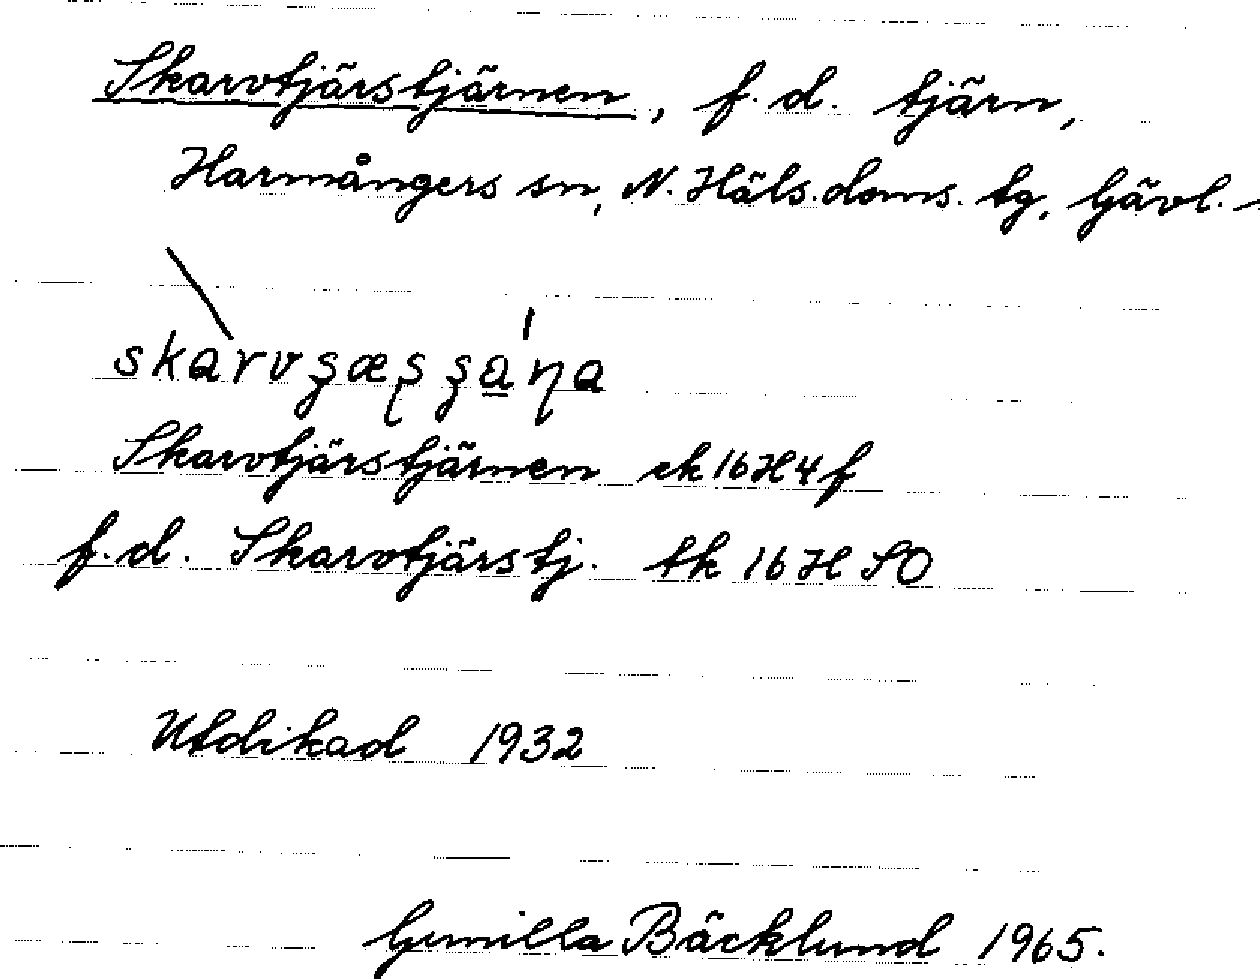 Skarvtjärstjärnen, f.d. tjärn,
Harmångers sn, N. Häls. doms. tg, Gävl.
Skarvtjärstjärnen ek 16H4f
f.d. Skarvtjärstj. tk 16H SO
Utdikad 1932
Gunilla Bäcklund 1965.